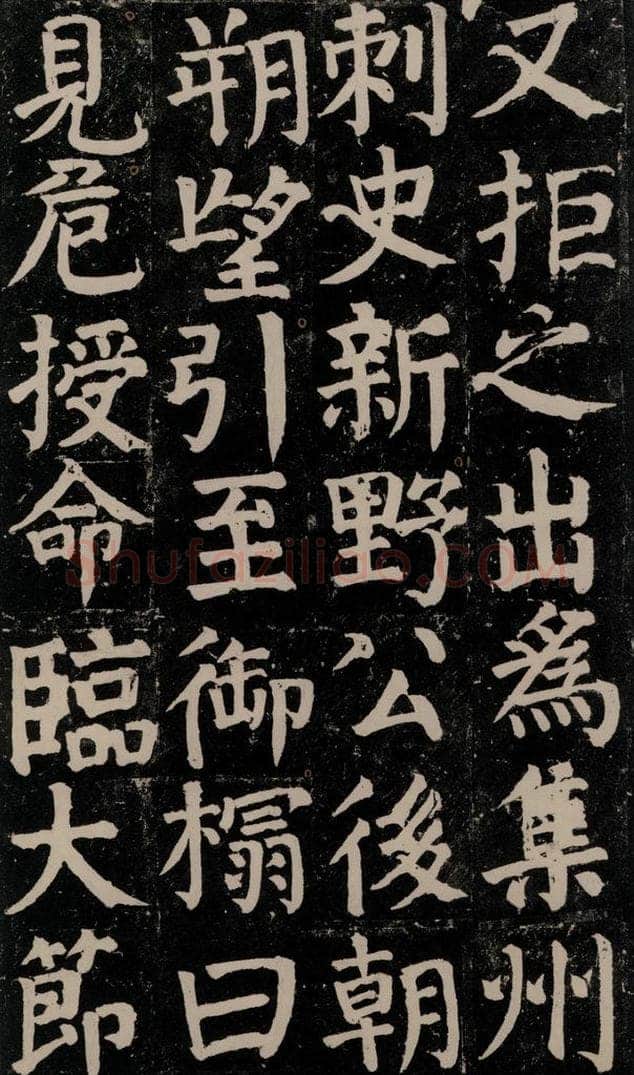 又拒之出為集州
刺史新野公後朝
朔望引至御榻曰
見危授命臨大節
Shufaziliao.COM